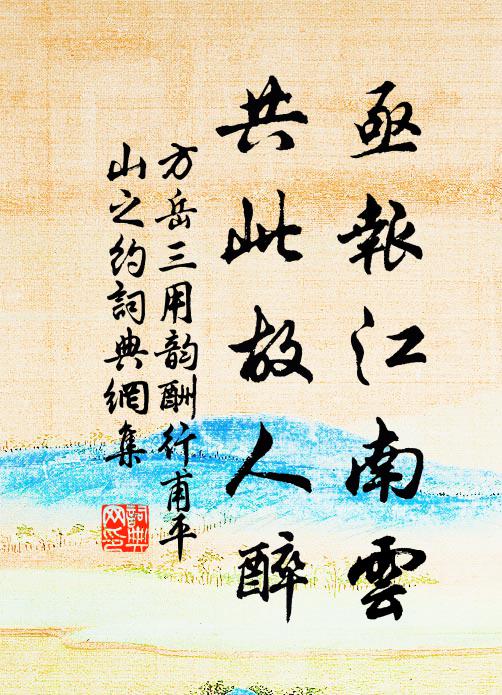 亟報江南雲
共此故人醉
方岳三用韵酬行甫平
山之約詞典網集